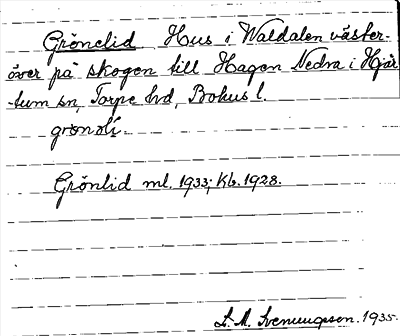 Grönelid Hus i Waldalen väster-
över på skogen till Hagen Nedra i Hjär
-tum sn, Torpe hd, Bohus l.
grönli.
Grönlid ml. 1933; Kb. 1928.
L. M. Svenungsson. 1935.